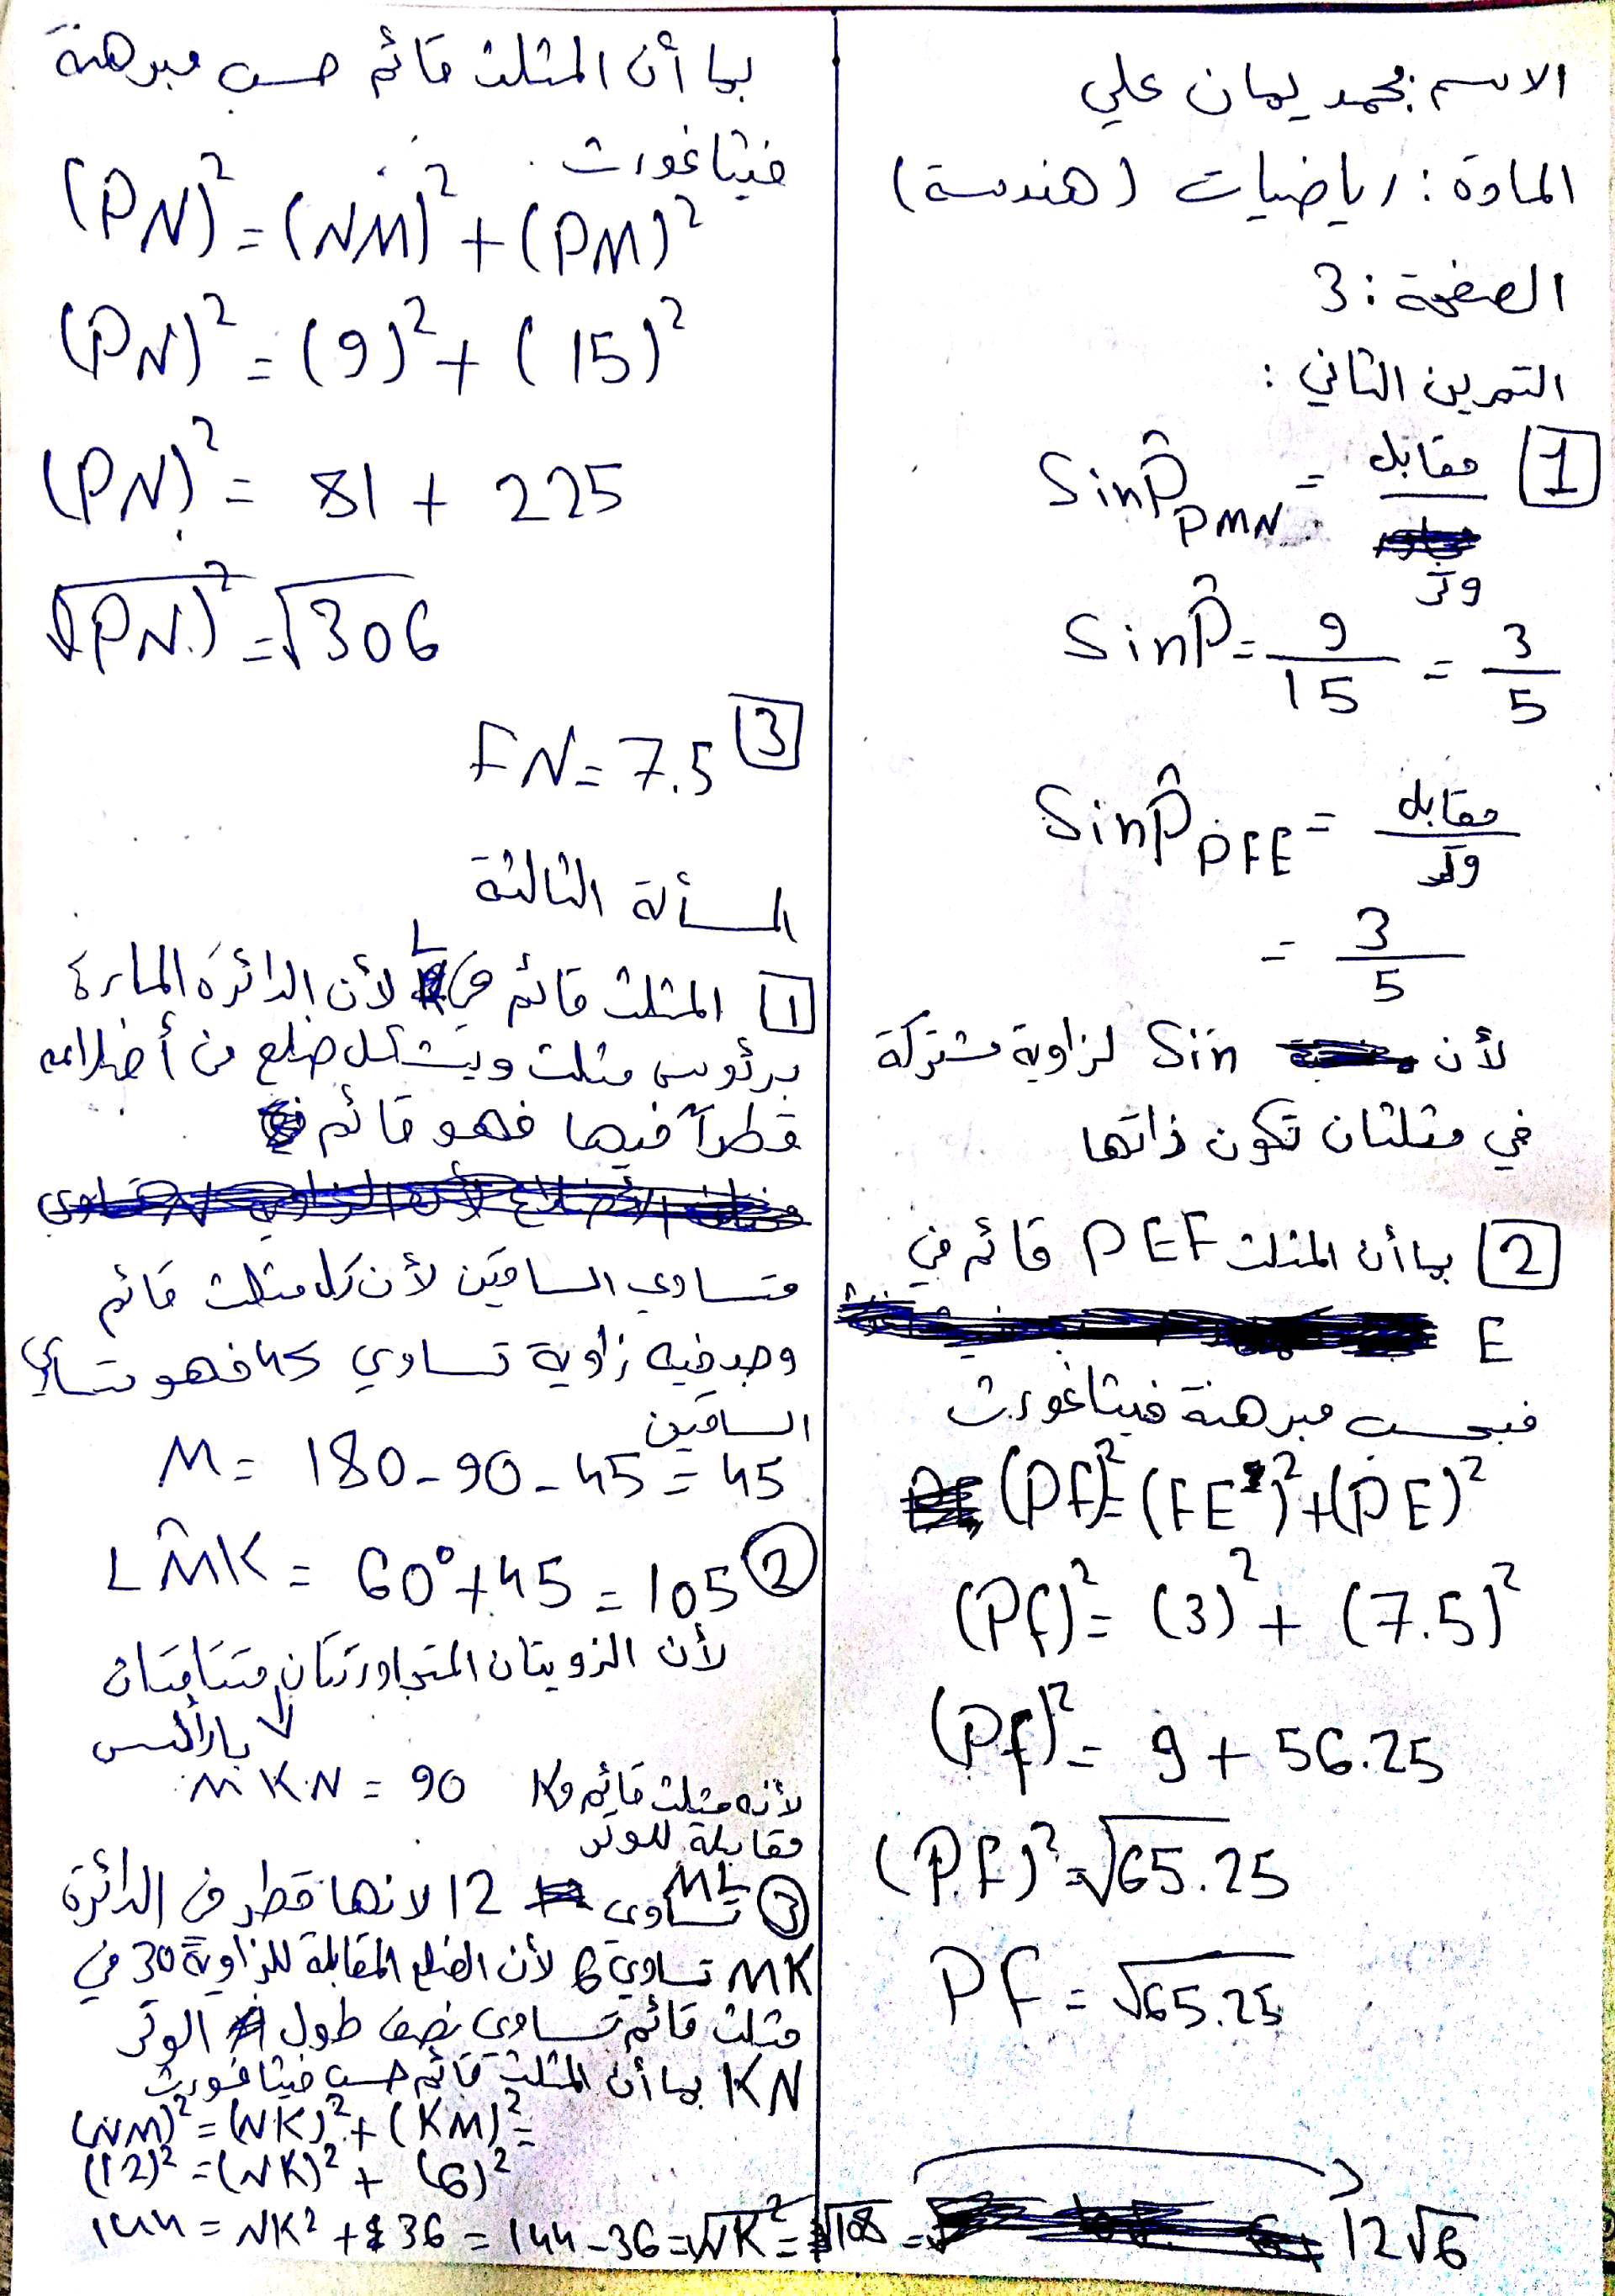 الاسم: محمد يمان علي
المادة: رياضيات (هندسة)
الصفحة: 3
التمرين الثاني:
1 SinP̂ PMN = مقابل / وتر
SinP̂ = 9/15 = 3/5
SinP̂ PFE = مقابل / وتر
= 3/5
لأن Sin لزاوية مشتركة
في مثلثان تكون ذاتها
2 بما أن المثلث PEF قائم في
E
فبحسب مبرهنة فيثاغورث
(PF)² = (FE)² + (PE)²
(Pf)² = (3)² + (7.5)²
(Pf)² = 9 + 56.25
(P.F)² = √65.25
PF = √65.25
بما أن المثلث قائم حسب مبرهنة
فيثاغورث
(PN)² = (NM)² + (PM)²
(PN)² = (9)² + (15)²
(PN)² = 81 + 225
√(PN)² = √306
3 FN = 7.5
المسألة الثالثة
1 المثلث قائم في L لأن الدائرة المارة
برئوس مثلث ويشكل ضلع من أضلاعه
قطراً فيها فهو قائم
متساوي الساقين لأن كل مثلث قائم
وجد فيه زاوية تساوي 45 فهو متساوي
الساقين
M = 180 - 90 - 45 = 45
2 LM̂K = 60° + 45 = 105
لأن الزويتان المتجاورتان متتامتان
بارأس
MKN = 90 لأنه مثلث قائم وK
مقابلة للوتر
3 ML تساوي 12 لانها قطر في الدائرة
MK تساوي 6 لأن الضلع المقابلة للزاوية 30 في
مثلث قائم تساوي نصف طول الوتر
KN بما أن المثلث قائم حسب فيثاغورث
(NM)² = (NK)² + (KM)² =
(12)² = (NK)² + (6)²
144 = NK² + 36 = 144 - 36 = √NK² = √108 = 12√6